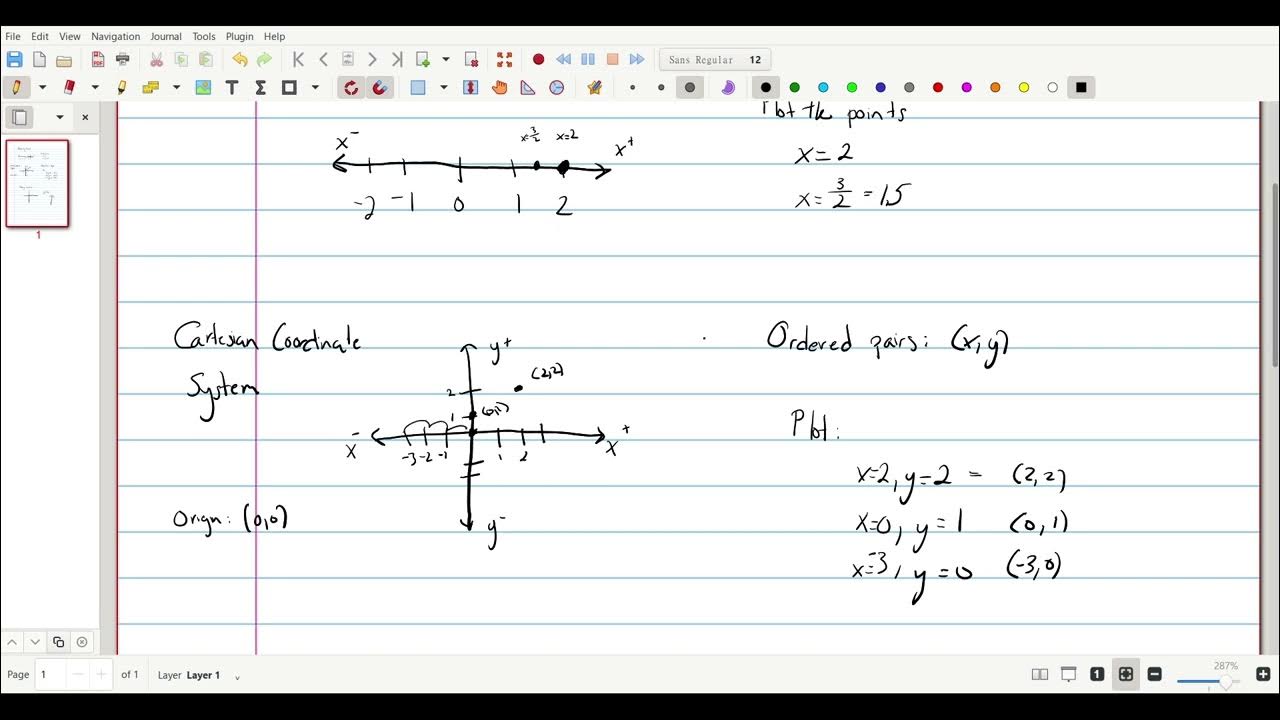 File Edit View Navigation Journal Tools Plugin Help
Sans Regular 12
Plot the points
x=3/2 x=2
x⁻ x⁺
x=2
-2 -1 0 1 2
x=3/2 =1.5
1
Cartesian Coordinate
System
Ordered pairs: (x,y)
y⁺
(2,2)
2
1 (0,1)
x⁻ x⁺
-3 -2 -1 1 2
Plot:
x=2, y=2 = (2,2)
Origin: (0,0)
x=0, y=1 (0,1)
y⁻
x=-3, y=0 (-3,0)
Page 1 of 1 Layer Layer 1
1
287%